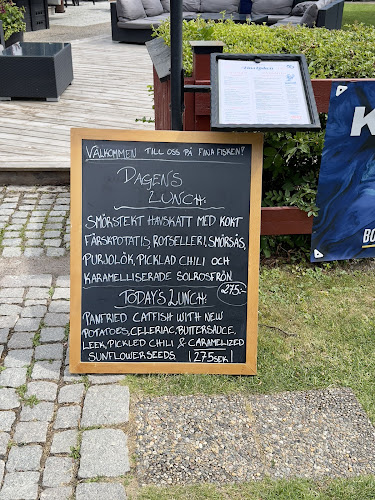 VÄLKOMMEN TILL OSS PÅ FINA FISKEN!
DAGENS
LUNCH:
SMÖRSTEKT HAVSKATT MED KOKT
FÄRSKPOTATIS, ROTSELLERI, SMÖRSÅS,
PURJOLÖK, PICKLAD CHILI OCH
KARAMELLISERADE SOLROSFRÖN.
275:-
TODAY'S LUNCH:
PANFRIED CATFISH WITH NEW
POTATOES, CELERIAC, BUTTERSAUCE,
LEEK, PICKLED CHILI & CARAMELIZED
SUNFLOWERSEEDS. |275SEK|
K
BO